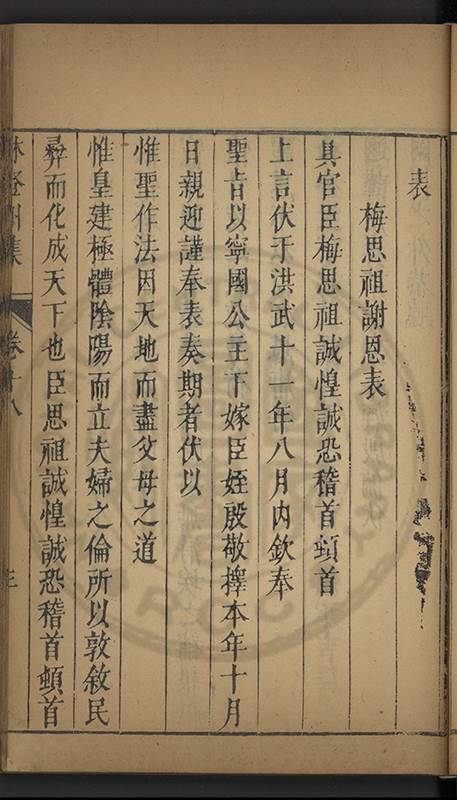 表
梅思祖謝恩表
具官臣梅思祖誠惶誠恐稽首頓首
上言伏于洪武十一年八月内欽奉
聖旨以寧國公主下嫁臣姪殷敬擇本年十月
日親迎謹奉表奏期者伏以
惟聖作法因天地而盡父母之道
惟皇建極體陰陽而立夫婦之倫所以敦敘民
彛而化成天下也臣思祖誠惶誠恐稽首頓首
林登州集 卷十八 三